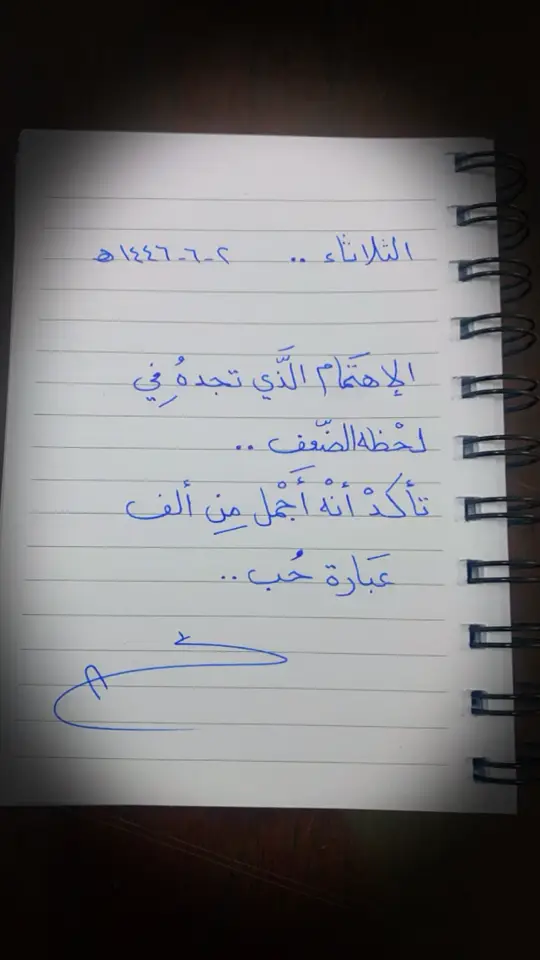 الثلاثاء .. ٢-٦-١٤٤٦ه
الإهتَمام الَّذي تجدهُ فِي
لحْظه الضّعف ..
تأكدْ أنْه أَجْمل مِن ألف
عَبارة حُب ..